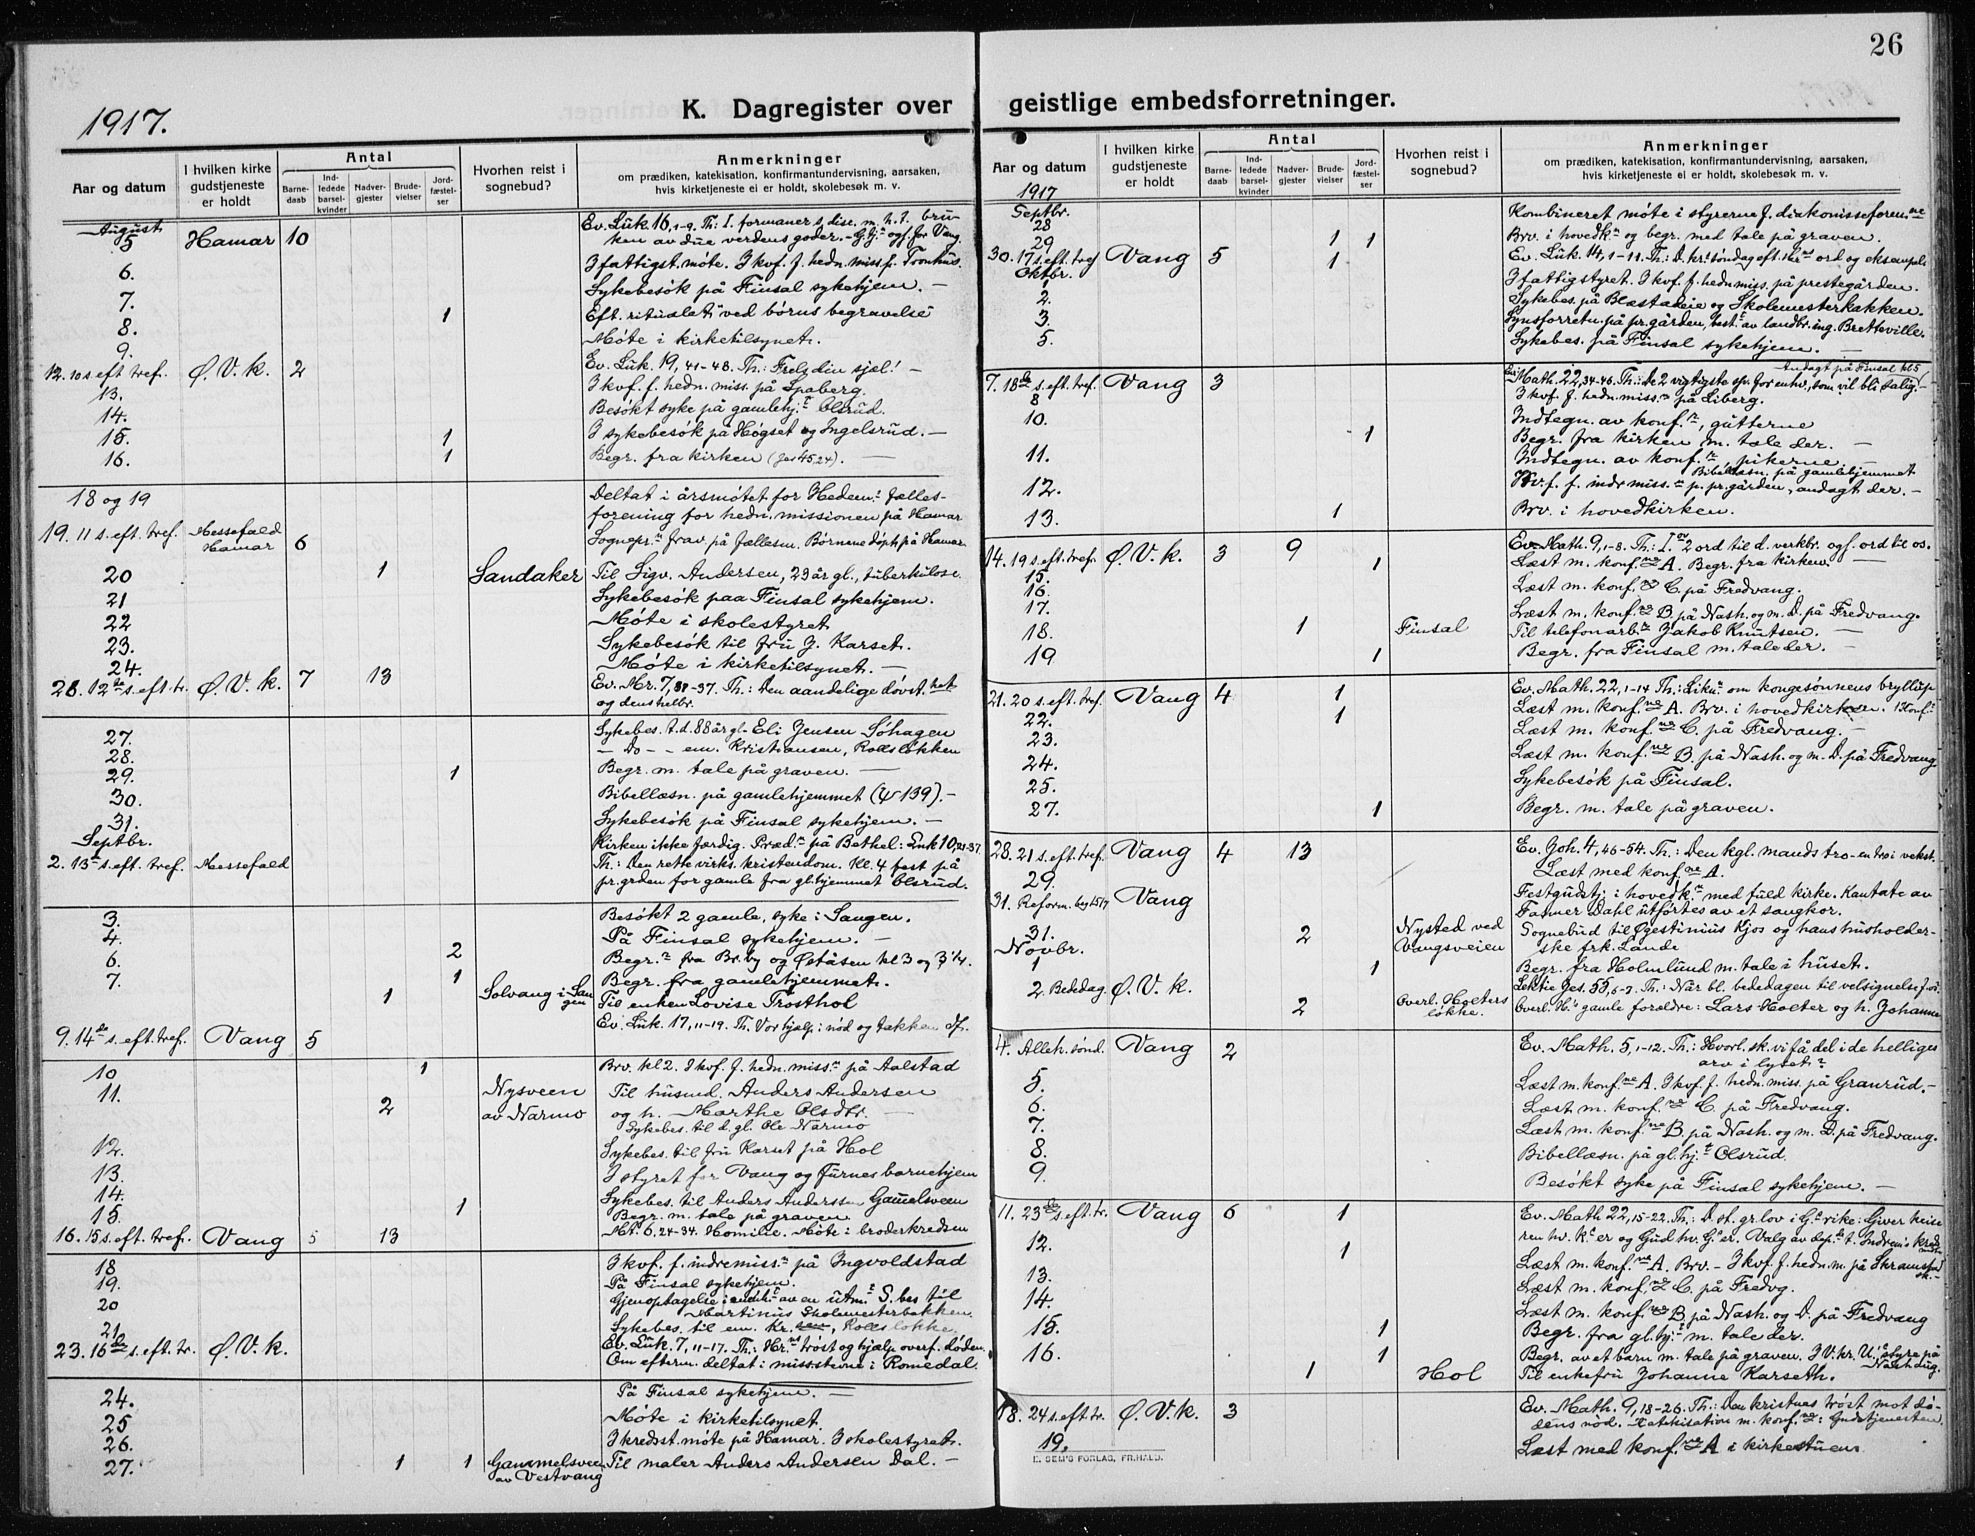 1917.
K. Dagregister over
Aar og datum
I hvilken kirke gudstjeneste er holdt
Antal
Barne-daab
Ind-ledede barsel-kvinder
Nadver-gjester
Brude-vielser
Jord-fæstel-ser
Hvorhen reist i sognebud?
Anmerkninger
om prædiken, katekisation, konfirmantundervisning, aarsaken,
hvis kirketjeneste ei er holdt, skolebesøk m. v.
August
5 Hamar 10 Ev. Luk 16, 1-9. Th: I. formaner s. disc. m. h. t. bru-
ken av due verdens goder.
6. I fattigst. møte. I kvf. f. hedn. miss. Tronhus.
Sykebesøk på Finsal sykehjem. —
7. 1 Eft. ritualet ved børns begravelse
8. Møte i kirketilsynet.
9.
12. 10 s. eft. tref. Ø. V. k. 2 Ev. Luk. 19, 41-48. Th.: Frels din sjel! —
13. I kvf. f. hedn. miss. på Spaberg.
14. Besøkt syke på gamlehj. Olsrud.
15. 1 I sykebesøk på Høgset og Ingelsrud. —
16. 1 Begr. fra kirken (Jes 45,24). —
18 og 19 Deltat i årsmøtet for Hedem. fælles-
forening for hedn. missionen på Hamar
19. 11 s. eft. tref. Messefald Hamar 6 Sognepr. frav. på fællesm. Børnene døpt på Hamar
20 1 Sandaker Til Sigv. Andersen, 23 år gl., tuberkulose.
21 Sykebesøk paa Finsal sykehjem.
22 Møte i skolestyret
23. Sykebesøk til fru J. Karset.
24. Møte i kirketilsynet. —
26. 12te s. eft. tr. Ø. V. k. 7 13 Ev. Mr. 7, 31-37. Th.: Den aandelige døvst.het
og dens helbr.
27. Sykebes. t. d. 88 år gl. Eli Jensen Søhagen
28. — Do — em. Kristiansen, Rolsløkken
29. 1 Begr. m. tale på graven. —
30. Bibellæsn. på gamlehjemmet (ψ 139). —
31. Sykebesøk på Finsal sykehjem. —
Septbr.
2. 13 s. eft. tref. Messefald Kirken ikke færdig. Præd. på Bethel: Luk 10, 23-37
Th.: Den rette virks. kristendom. Kl. 4 fest på
pr.grden for gamle fra gl.hjemmet Olsrud.
3. Besøkt 2 gamle, syke i Sangen.
4. På Finsal sykehjem. —
6. 2 Begr. fra Br.by og Øståsen kl 3 og 3 1/4.
7. 1 Begr. fra gamlehjemmet.
1 Solvang i Sangen Til enken Lovise Trosthol
9. 14de s. eft. tref. Vang 5 Ev. Luk. 17, 11-19. Th. Vor hjælp i nød og takken df.
10 1 Brv. kl 2. I kvf. f. hedn. miss. på Aalstad
11. 2 Nysveen av Narmo Til husmd. Anders Andersen
og h. Marthe Olsdtr. —
Sykebes. til d. gl. Ole Narmo
12. Sykebes. til fru Karset på Hol
13. I styret for Vang og Furnes barnehjem
14. Sykebes. til Anders Andersen Gamelsveen
15. 1 Begr. m. tale på graven
16. 15 s. eft. tref. Vang 5 13 Mt. 6, 24-34. Homilie. Møte i broderkredsen
18 I kvf. f. indremiss. på Ingvoldstad
19. På Finsal sykehjem.
20 Gjenoptagelse i av en utm. S.bes til
Martinus Skolemesterbakken.
21 Sykebes. til em. Kr.sen, Rolsløkke
23. 16de s. eft. tr. Ø. V. k. Ev. Luk. 7, 11-17. Th.: Hr. trøst og hjælp overf. døden.
Om efterm. deltat i miss.stevne i Romedal.
24. På Finsal sykehjem. —
25 Møte i kirketilsynet.
26. I kredsst. møte på Hamar. I skolestyret.
27. 1 1 Gammelsveen av Vestvang Til maler Anders Andersen Dal. —
26
geistlige embedsforretninger.
Aar og datum
I hvilken kirke gudstjeneste er holdt
Antal
Barne-daab
Ind-ledede barsel-kvinder
Nadver-gjester
Brude-vielser
Jord-fæstel-ser
Hvorhen reist i sognebud?
Anmerkninger
om prædiken, katekisation, konfirmantundervisning, aarsaken,
hvis kirketjeneste ei er holdt, skolebesøk m. v.
1917
Septbr.
28 Kombineret møte i styrerne f. diakonisseforen.ne
29 1 1 Brv. i hovedk. og begr. med tale på graven.
30. 17 s. eft. tref Vang 5 1 Ev. Luk. 14, 1-11. Th.: D. kr. søndag eft. Kr. ord og eksempel
Oktbr.
1 I fattigstyret. I kvf. f. hedn miss. på prestegården.
2. Sykebes. på Blæstadeie og Skolemesterbakken.
3. Synsforretn. på pr.gården, best. av landbr. ing. Bretteville.
5. Sykebes. på Finsal sykehjem. —
Andagt på Finsal kl 5
7. 18de s. eft. tref. Vang 3 Ev. Math. 22, 34-46. Th.: De 2 vigtigste sp. for enhv., som vil bli salig.
8 I kvf. f. hedn. miss. på Liberg.
10. Indtegn. av konf., gutterne
1 Begr. fra kirken m. tale der. —
11. Indtegn. av konf., pikerne —
Bibellæsn. på gamlehjemmet
12. Kv. f. f. indr miss. p. pr.gården, andagt der. —
13. 1 Brv. i hovedkirken.
14. 19 s. eft. tref. Ø. V. k. 3 9 Ev. Math. 9, 1-8. Th: I. 2 ord til d. verkbr. ogf. ord til os.
15. 1 Læst m. konf.ne A. Begr. fra kirken. —
16. Læst m. konf.ne C. på Fredvang.
17. Læst m. konf.ne B. på Nash. og m. D. på Fredvang.
18. 1 Finsal Til telefonarb. Jakob Knutsen. —
19 1 Begr. fra Finsal m. tale der. —
21. 20 s. eft. tref. Vang 4 1 Ev. Math. 22, 1-14 Th.: Likn. om kongesønnens bryllup
22. 1 Læst m. konf.ne A. Brv. i hovedkirken.
23. Læst m. konf.ne C. på Fredvang. —
24. Læst m. konf.ne B. på Nash. og m. D. på Fredvang
25. Sykebesøk på Finsal.
27. 1 Begr. m. tale på graven.
28. 21 s. eft. tref. Vang 4 13 Ev. Joh. 4, 46-54. Th.: Den kgl. mands tro - en tro i vekst.
29. Læst med konf.ne A.
31. Reform. beg 1517 Vang Festgudstj. i hovedk. med fuld kirke. Kantate av
Fanner Dahl utførtes av et sangkor.
31. 2 Nysted ved Vangsveien Sognebud til Øgestinius Kjos og hans husholder-
ske frk. Lande
Novbr.
1 1 Begr. fra Holmlund m. tale i huset.
2 Bededag. Ø. V. k. Lektie Jes. 55, 6-7. Th.: Når bl. bededagen til velsignelse f. os.
2 Overl. Holters løkke. Overl. H.s gamle forældre: Lars Holter og h. Johanne
4. Alleh. sønd. Vang 2 Ev. Math. 5, 1-12. Th.: Hvorl. sk. vi få del i de helliges
arv i lyset?
5. Læst m. konf.ne A. I kvf. f. hedn. miss. på Granrud. —
6. Læst m. konf.ne C. på Fredvang.
7. Læst m. konf.ne B. på Nash. og m. D. på Fredvang.
8. Bibellæsn. på gl.hj. Olsrud.
9. Besøkt syke på Finsal sykehjem. —
11. 23de s. eft. tr. Vang 6 1 Ev. Math 22, 15-22. Th.: D. st. gr.lov i G.s rike: Giver keise
ren hv. K.s er og Gud hv. G.s er. Valg av dep. t. Indrem.s kreds
12. 1 Læst m. konf.ne A. Brv. — I kvf. f. hedn. m. på Skramstad
13. Læst m. konf.ne C. på Fredvg.
14. Læst m. konf.ne B. på Nash. og D. på Fredvang
15. 1 Begr. fra gl.hj. m. tale der.
16. 1 Begr. av et barn m. tale på graven. I V. kr. U.s styre på
1 Hol Til enkefru Johanne Karseth.
18. 24 s. eft. tr. Ø. V. k. 3 Ev. Math. 9, 18-26. Th.: Den kristnes trøst mot dø-
dens nød. Katekisation m. konf.ne i gudstjenesten.
19. Læst med konf.ne A i kirkestuen
E. SEM'S FORLAG, FR.HALD.